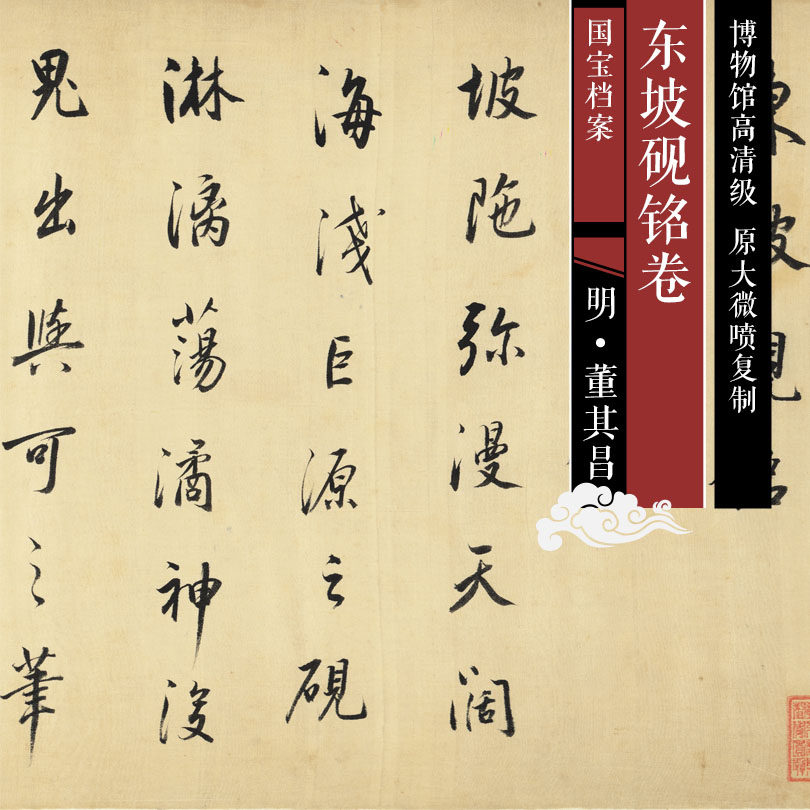 博物馆高清级 原大微喷复制
东坡砚铭卷
国宝档案
明·董其昌
坡陁弥漫天闊
海淺巨源之硯
淋漓蕩潏神没
鬼出與可之筆